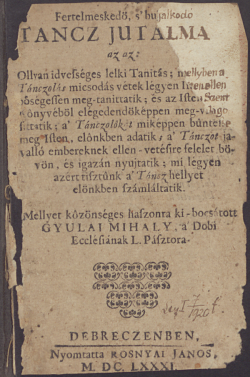 Fertelmeskedő, s' busalkodo
TANCZ JUTALMA
az az:
Ollyan idvességes lelki Tanitás; mellyben a
Tánczolás micsodás vetek légyen Isten ellen
böségessen meg-tanittatik; és az Isten Szent
könyvéböl elégedendöképpen meg-világo
sittatik; a' Tánczolók-is miképpen büntette
meg Isten, elönkben adatik; a' Tánczot ja-
valló embereknek ellen-vetésire felelet bö-
vön, és igazán nyujtatik; mi légyen
azért tisztünk a' Táncz hellyet
elönkben számláltatik.
Mellyet közönséges haszonra ki-bocsátott
GYULAI MIHALY, a' Dobi
Ecclésiának L. Pásztora.
DEBRECZENBEN,
Nyomtatta ROSNYAI JANOS,
M. DC. LXXXI.